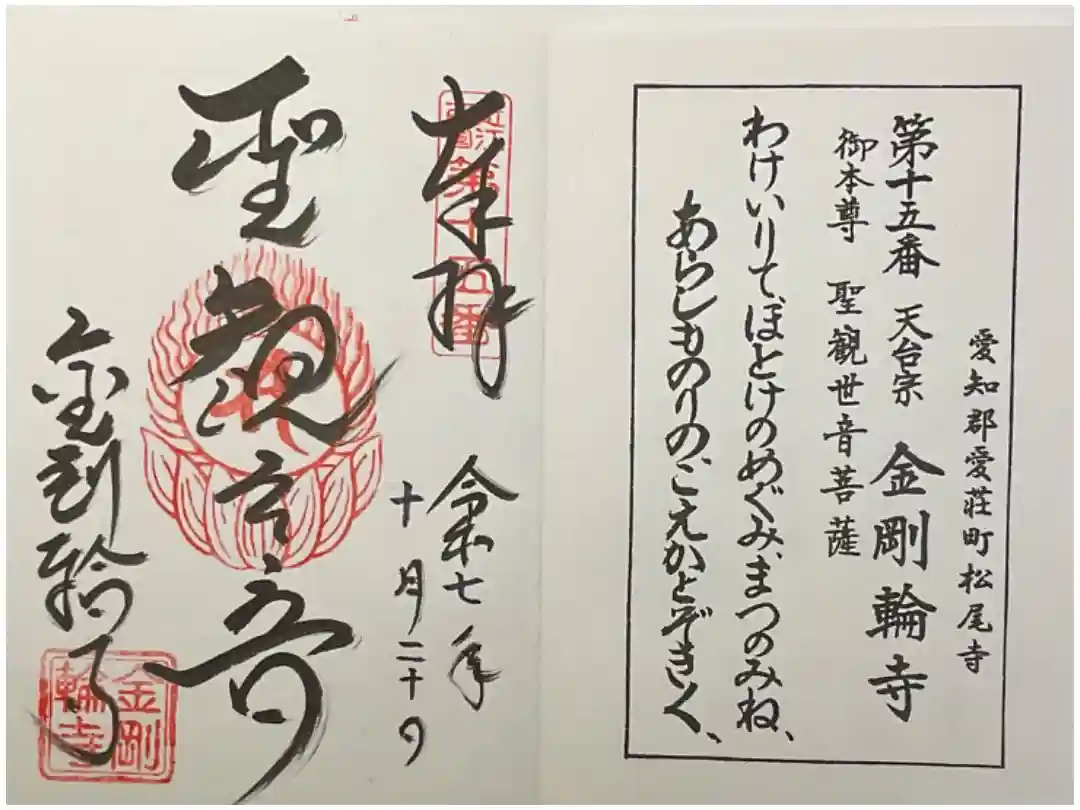 愛知郡愛荘町松尾寺
第十五番 天台宗 金剛輪寺
御本尊 聖観世音菩薩
わけいりてほとけのめぐみ、まつのみね、
あらしものりのこえかとぞきく、
奉拝
近江西国第十五番
令和七年
十月二十日
聖観世音
金剛輪寺
金剛輪寺